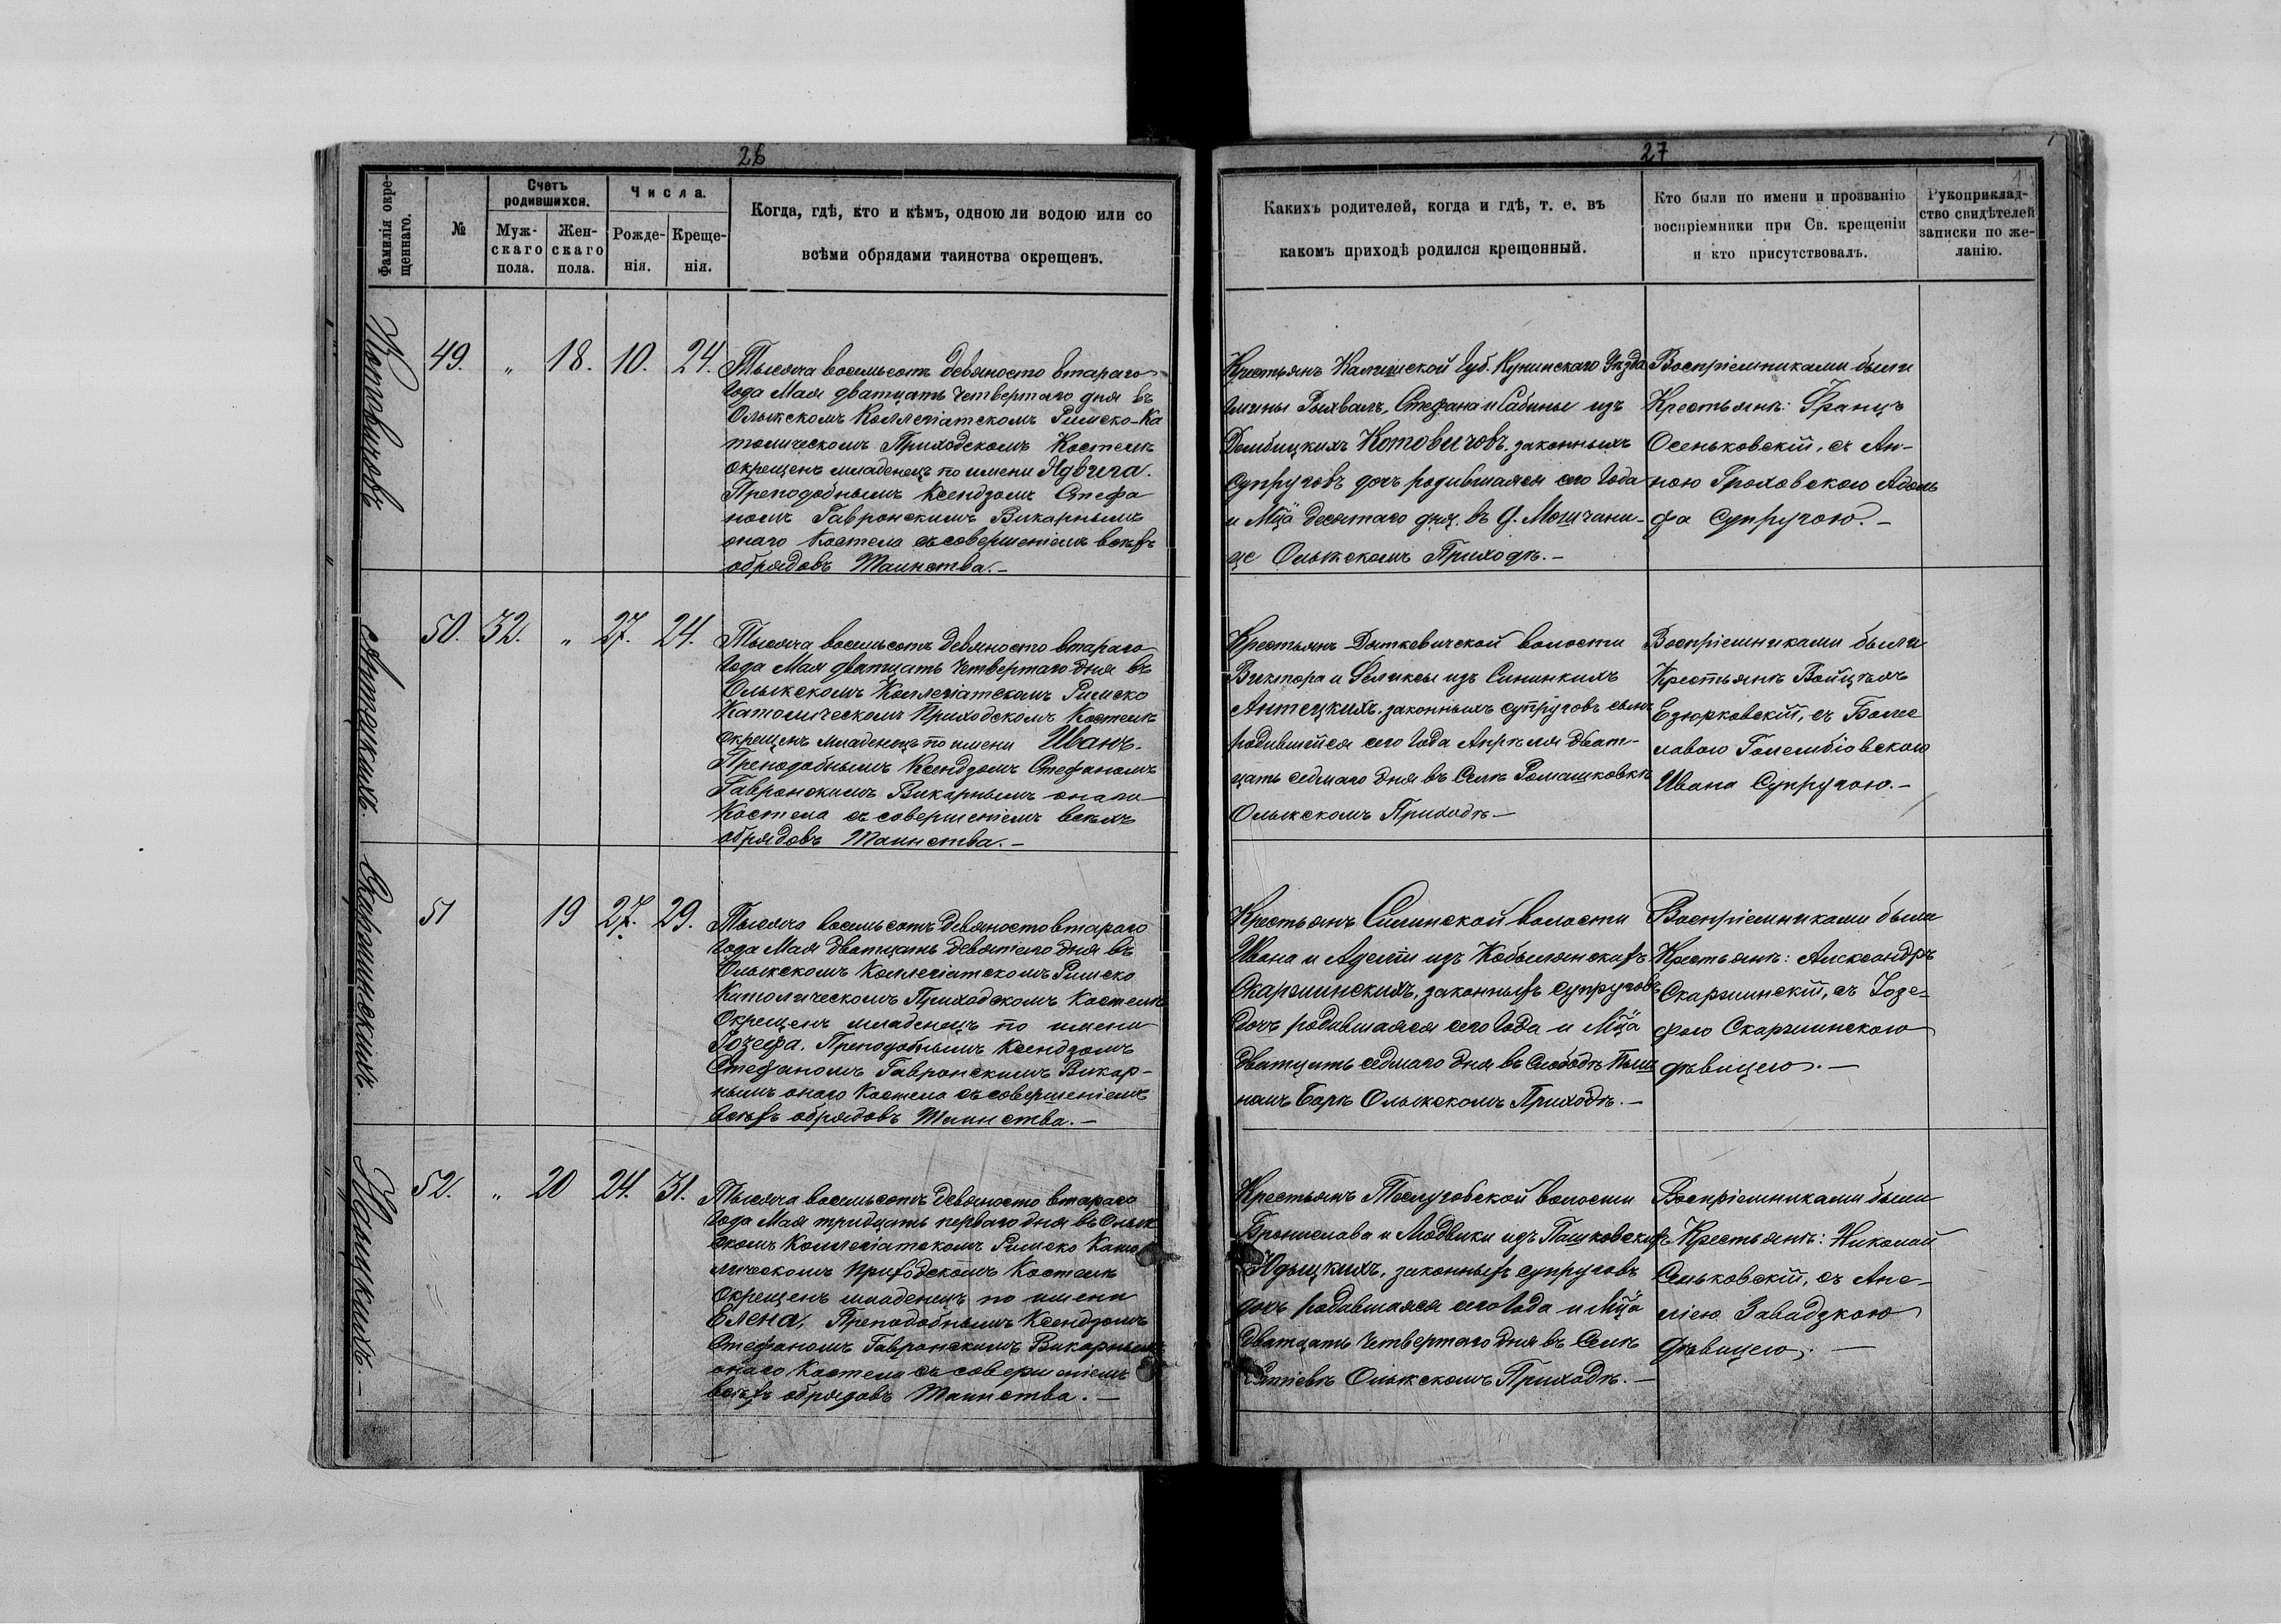 26
Фамилія окре-
щеннаго.
№
Счетъ
родившихся.
Муж-
скаго
пола.
Жен-
скаго
пола.
Числа.
Рожде-
нія.
Креще-
нія.
Когда, гдѣ, кто и кѣмъ, одною ли водою или со
всѣми обрядами таинства окрещенъ.
49.
„
18.
10.
24.
Тысяча восемьсотъ девяносто втараго
года Мая дватцать четвертаго дня въ
Олыкскомъ Коллегіатскомъ Римско-Ка
толическомъ Приходскомъ Костелѣ
окрещенъ младенецъ по имени Ядвига.
Преподобнымъ Ксендзомъ Стефа
номъ Гавронскимъ Викарнымъ
онаго Костела съ совершеніемъ всѣхъ
обрядовъ Таинства.–
Антецкихъ.
50.
32.
„
27.
24.
Тысяча восемьсотъ девяносто втараго
года Мая дватцать четвертаго дня въ
Олыкскомъ Коллегіатскомъ Римско
Католическомъ Приходскомъ Костелѣ
окрещенъ младенецъ по имени Иванъ.
Преподобнымъ Ксендзомъ Стефаномъ
Гавронскимъ Викарнымъ онаго
Костела съ совершеніемъ всѣхъ
обрядовъ Таинства.–
Скаржинскихъ.
51
19
27.
29.
Тысяча восемьсотъ девяносто втараго
года Мая дватцать девятаго дня въ
Олыкскомъ Коллегіатскомъ Римско
Католическомъ Приходскомъ Костелѣ
Окрещенъ младенецъ по имени
Іозефа. Преподобнымъ Ксендзомъ
Стефаномъ Гавронскимъ Викар-
нымъ онаго Костела съ совершеніемъ
всѣхъ обрядовъ Таинства.–
52.
„
20
24.
31.
Тысяча восемьсотъ девяносто втараго
года Мая тридцать перваго дня въ Олык
скомъ Коллегіатскомъ Римско Като
лическомъ Приходскомъ Костелѣ
Окрещенъ младенецъ по имени
Елена, Преподобнымъ Ксендзомъ
Стефаномъ Гавронскимъ Викарнымъ
онаго Костела съ совершеніемъ
всѣхъ обрядовъ Таинства.–
27
Какихъ родителей, когда и гдѣ, т. е. въ
какомъ приходѣ родился крещенный.
Кто были по имени и прозванію
воспріемники при Св. крещеніи
и кто присутствовалъ.
Рукоприклад-
ство свидѣтелей
записки по же-
ланію.
Крестьянъ Калишской Губ. Уѣзда
Гмины Рыхвалъ, Стефана и Сабины изъ
Дембицкихъ Котовичовъ законныхъ
Супруговъ дочь родившаяся сего Года
и Мца десятаго дня. въ
Олыкскомъ Приходѣ.–
Воспріемниками были
Крестьянѣ: Францъ
Осеньковскій, съ Ан-
ною Гроховскою Адоль
фа Супругою.–
Крестьянъ Дяткевичской волости
Виктора и Феликсы изъ
Антецкихъ законныхъ супруговъ сынъ
родившійся сего Года Апрѣля дват-
цать седмаго дня въ Селѣ Ромашковкѣ
Олыкскомъ Приходѣ –
Воспріемниками были
Крестьянѣ Войцѣхъ
Езюрковскій, съ Боле
славою Голембіовскою
Ивана Супругою.–
Крестьянъ Силинской волости
Ивана и Адели изъ Кобылянскихъ
Скаржинскихъ, законныхъ супруговъ
дочь родившаяся сего Года и Мца
дватцать седмаго дня въ Слободѣ
Олыкскомъ Приходѣ.–
Воспріемниками были
Крестьянѣ: Александръ
Скаржинскій, съ Іозе-
фою Скаржинскою
дѣвицею.–
Крестьянъ волости
Бронислава и Людвики изъ Пашковскихъ
законныхъ супруговъ
дочь родившаяся сего Года и Мца
дватцать четвертаго дня въ Селѣ
Олыкскомъ Приходѣ.–
Воспріемниками были
Крестьянѣ: Николай
Сеньковскій, съ Ане-
лією Завадзкою
дѣвицею.–